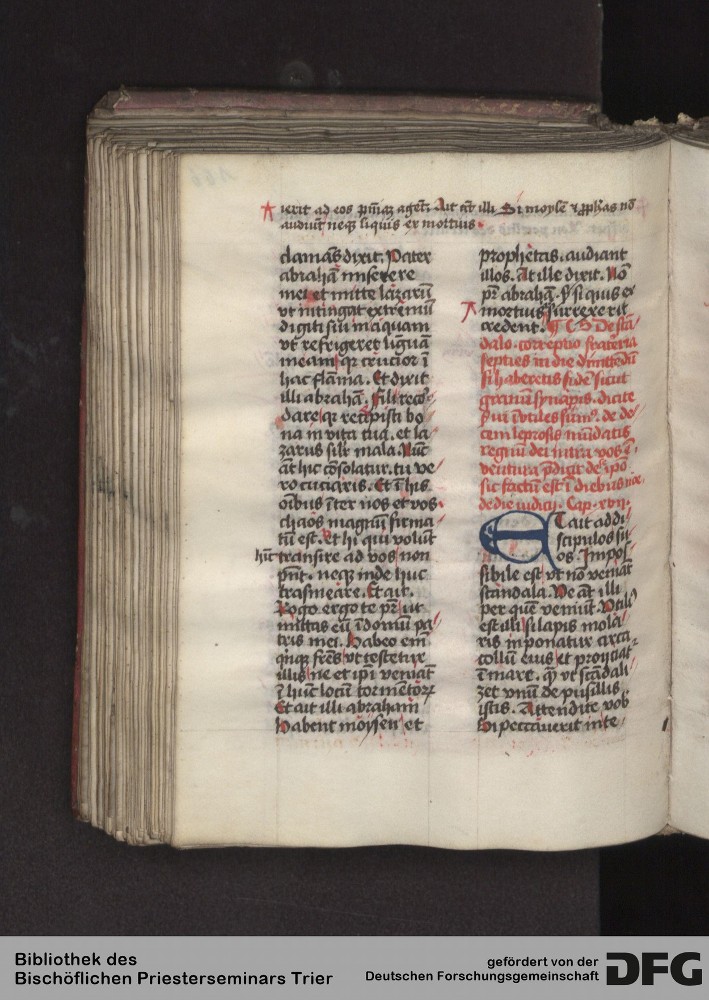 ierit ad eos pniam agent. Ait at illi Si moysen et prophas nō
audiunt neqz si quis ex mortuis
clamās dixit. Pater
abrahā miserere
mei et mitte lazarū
vt intingat extremū
digiti sui in aquam
vt refrigeret liguā
meam qr crucior ī
hac flāma. Et dixit
illi abrahā. Fili reco
dare qr recepisti bo
na in vita tua. et la
zarus silr mala. Nūc
āt hic cōsolatur. tu ve
ro cruciaris. Et ī his
oībus īter nos et vos
chaos magnū firma
tū est. et hi qui volūt
hīc transire ad vos non
pnt. neqz inde huc
trasmeare. Et ait.
Rogo ergo te pr ut
mittas eū ī domū pa
tris mei. habeo em
qnqz frēs vt testetur
illis ne et ipi veniāt
ī hūc locū tormētorz
Et ait illi abraham
habent moysen et
prophetas. audiant
illos. At ille dixit. Nō
pr abrahā. sz si quis ex
mortuis surrexerit
credent. De scā
dalo. correptio frater
septies in die dimittēdū
si haberetis fidē sicut
granum synapis. dicite
serui īvtiles sum9. de de
cem leprosis mūdatis
regnū dei intra vos ē
ventura
sic factū est ī diebus noe
de die iudicii. Cap. xvii.
Et ait ad di
scipulos su
os. Impos
sibile est vt nō veniāt
scandala. Ve āt illi
per quē veniūt. Vtili9
est illi si lapis mola
ris imponatur circa
collū eius et proiciat
ī mare. qz vt scādali
zet vnū de pusillis
istis. Attendite vob
Si peccauerit in te
Bibliothek des
Bischöflichen Priesterseminars Trier
gefördert von der
Deutschen Forschungsgemeinschaft
DFG